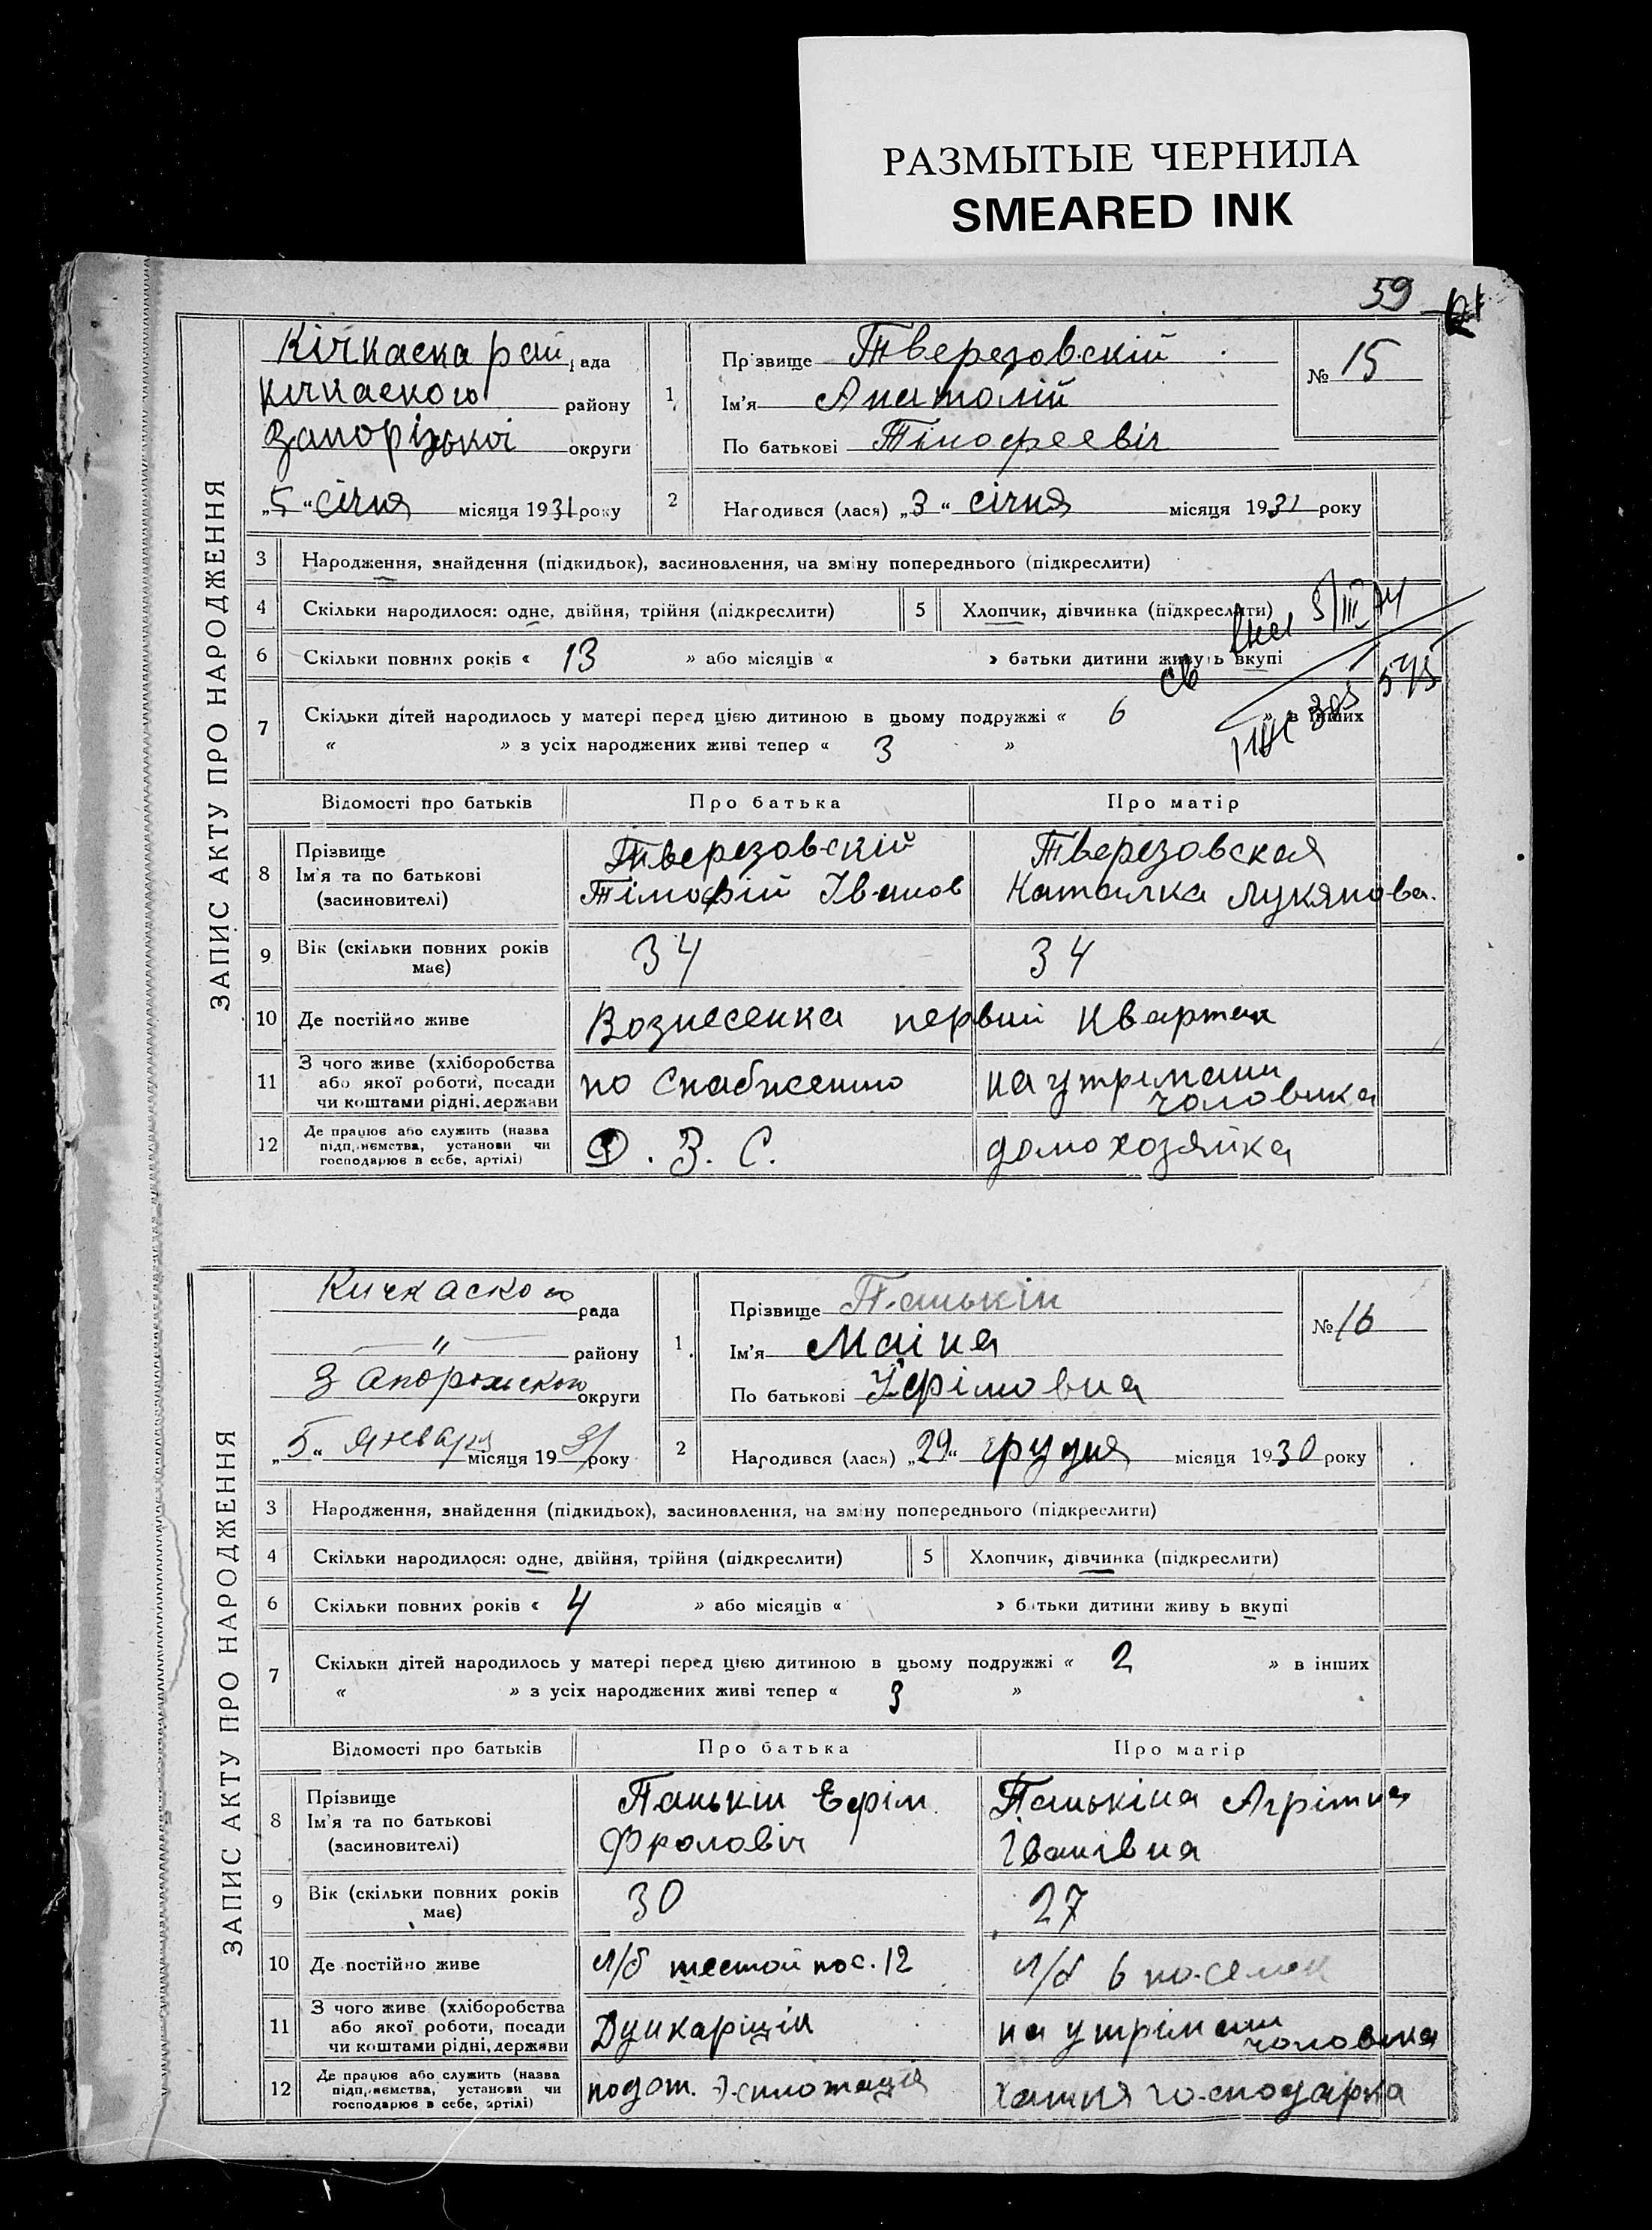 РАЗМЫТЫЕ ЧЕРНИЛА
SMEARED INK
59
ЗАПИС АКТУ ПРО НАРОДЖЕННЯ
Кічкаска рай рада
Кічкаского району
Запоріжської округи
„5“ січня місяця 1931 року
1 Прізвище Тверезовскій
Ім'я Анатолій
По батькові Тімофеевіч
№ 15
2 Народився (лася) „3“ січня місяця 1931 року
3 Народження, знайдення (підкидьок), засиновлення, на зміну попереднього (підкреслити)
4 Скільки народилося: одне, двійня, трійня (підкреслити) 5 Хлопчик, дівчинка (підкреслити)
5/III 74
6 Скільки повних років « 13 » або місяців « » батьки дитини живуть вкупі
7 Скільки дітей народилось у матері перед цією дитиною в цьому подружжі « 6 » в інших
« » з усіх народжених живі тепер « 3 »
Відомості про батьків Про батька Про матір
8 Прізвище Ім'я та по батькові (засиновителі)
Тверезовскій Тімофій Іванов
Тверезовская Наталка Лукянова.
9 Вік (скільки повних років має) 34 34
10 Де постійно живе Вознесенка первий квартал
11 З чого живе (хліборобства або якої роботи, посади чи коштами рідні, держави
по снабженію
на утримани чоловика
12 Де працює або служить (назва підприємства, установи чи господарює в себе, артілі)
Д. З. С.
домохозяйка
ЗАПИС АКТУ ПРО НАРОДЖЕННЯ
Кичкаского рада
—"— району
Запорожского округи
„5“ Января місяця 1931 року
1 Прізвище Панькін
Ім'я Маіна
По батькові Уфімовна
№ 16
2 Народився (лася) „29“ грудня місяця 1930 року
3 Народження, знайдення (підкидьок), засиновлення, на зміну попереднього (підкреслити)
4 Скільки народилося: одне, двійня, трійня (підкреслити) 5 Хлопчик, дівчинка (підкреслити)
6 Скільки повних років « 4 » або місяців « » батьки дитини живу ь вкупі
7 Скільки дітей народилось у матері перед цією дитиною в цьому подружжі « 2 » в інших
« » з усіх народжених живі тепер « 3 »
Відомості про батьків Про батька Про матір
8 Прізвище Ім'я та по батькові (засиновителі)
Панькин Ефім. Фроловіч
Панькіна Іванівна
9 Вік (скільки повних років має) 30 27
10 Де постійно живе л/б шестой пос. 12 л/б 6 поселок
11 З чого живе (хліборобства або якої роботи, посади чи коштами рідні, держави
на утрімани чоловика
12 Де працює або служить (назва підприємства, установи чи господарює в себе, артілі)
хатня господарка